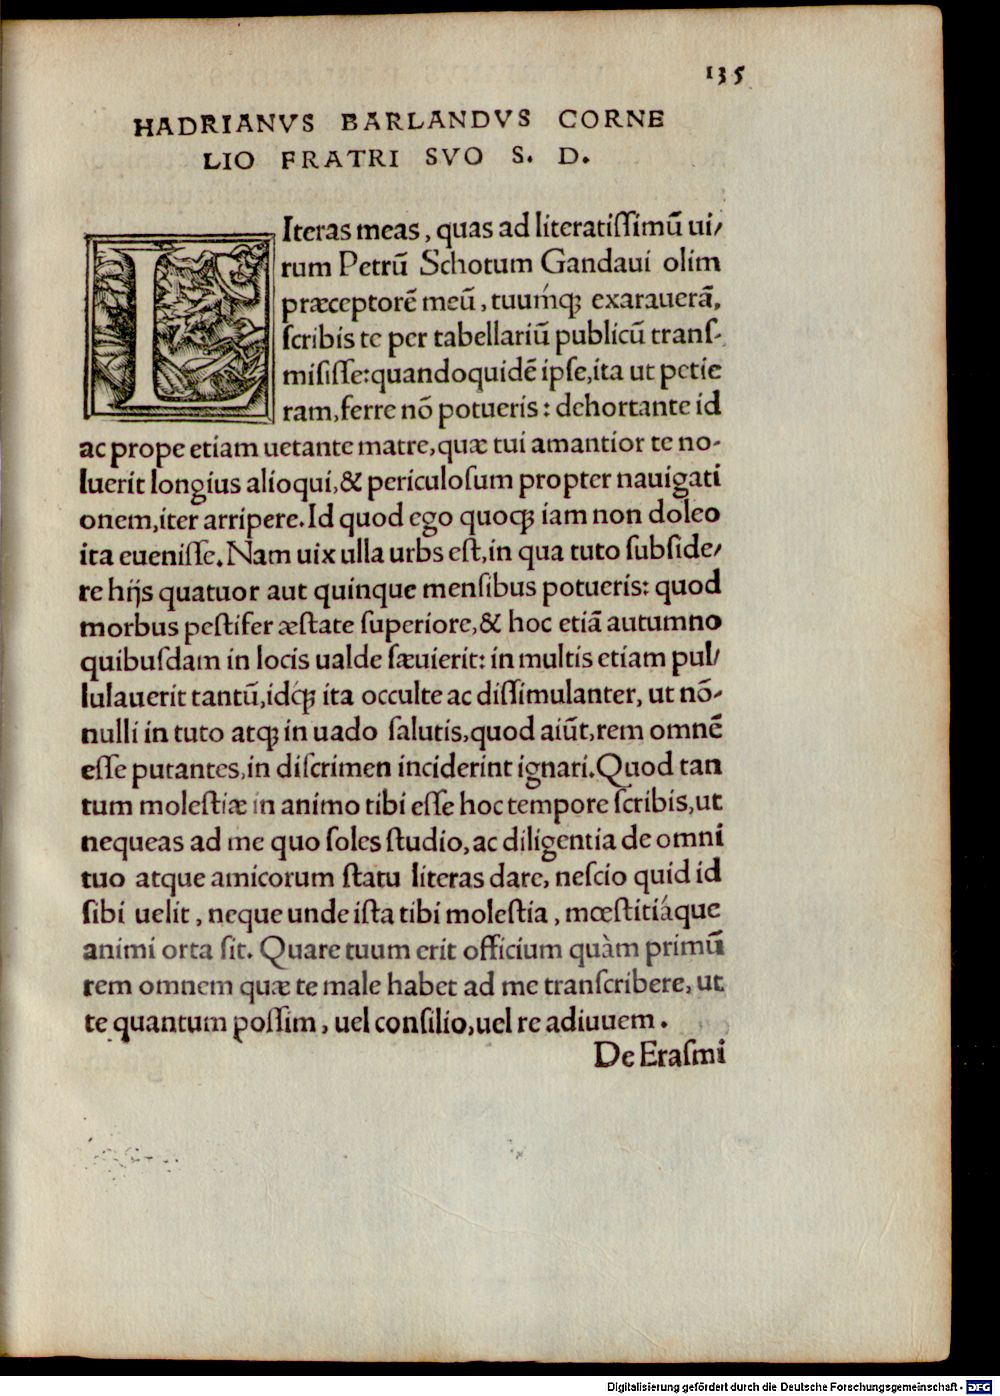 135
HADRIANVS BARLANDVS CORNE
LIO FRATRI SVO S. D.
LIteras meas, quas ad literatiſſimũ ui/
rum Petrũ Schotum Gandaui olim
præceptorẽ meũ, tuumq́ꝫ exarauerã,
ſcribis te per tabellariũ publicũ tranſ-
miſiſſe: quandoquidẽ ipſe, ita ut petie
ram, ferre nõ potueris: dehortante id
ac prope etiam uetante matre, quæ tui amantior te no-
luerit longius alioqui, & periculoſum propter nauigati
onem, iter arripere. Id quod ego quoqꝫ iam non doleo
ita eueniſſe. Nam uix ulla urbs eſt, in qua tuto ſubſide/
re hijs quatuor aut quinque menſibus potueris: quod
morbus peſtifer æſtate ſuperiore, & hoc etiã autumno
quibuſdam in locis ualde ſæuierit: in multis etiam pul/
lulauerit tantũ, idq́ꝫ ita occulte ac diſſimulanter, ut nõ-
nulli in tuto atqꝫ in uado ſalutis, quod aiũt, rem omnẽ
eſſe putantes, in diſcrimen inciderint ignari. Quod tan
tum moleſtiæ in animo tibi eſſe hoc tempore ſcribis, ut
nequeas ad me quo ſoles ſtudio, ac diligentia de omni
tuo atque amicorum ſtatu literas dare, neſcio quid id
ſibi uelit, neque unde iſta tibi moleſtia, mœſtitiáque
animi orta ſit. Quare tuum erit officium quàm primũ
rem omnem quæ te male habet ad me tranſcribere, ut
te quantum poſſim, uel conſilio, uel re adiuuem.
De Eraſmi
Digitalisierung gefördert durch die Deutsche Forschungsgemeinschaft - DFG